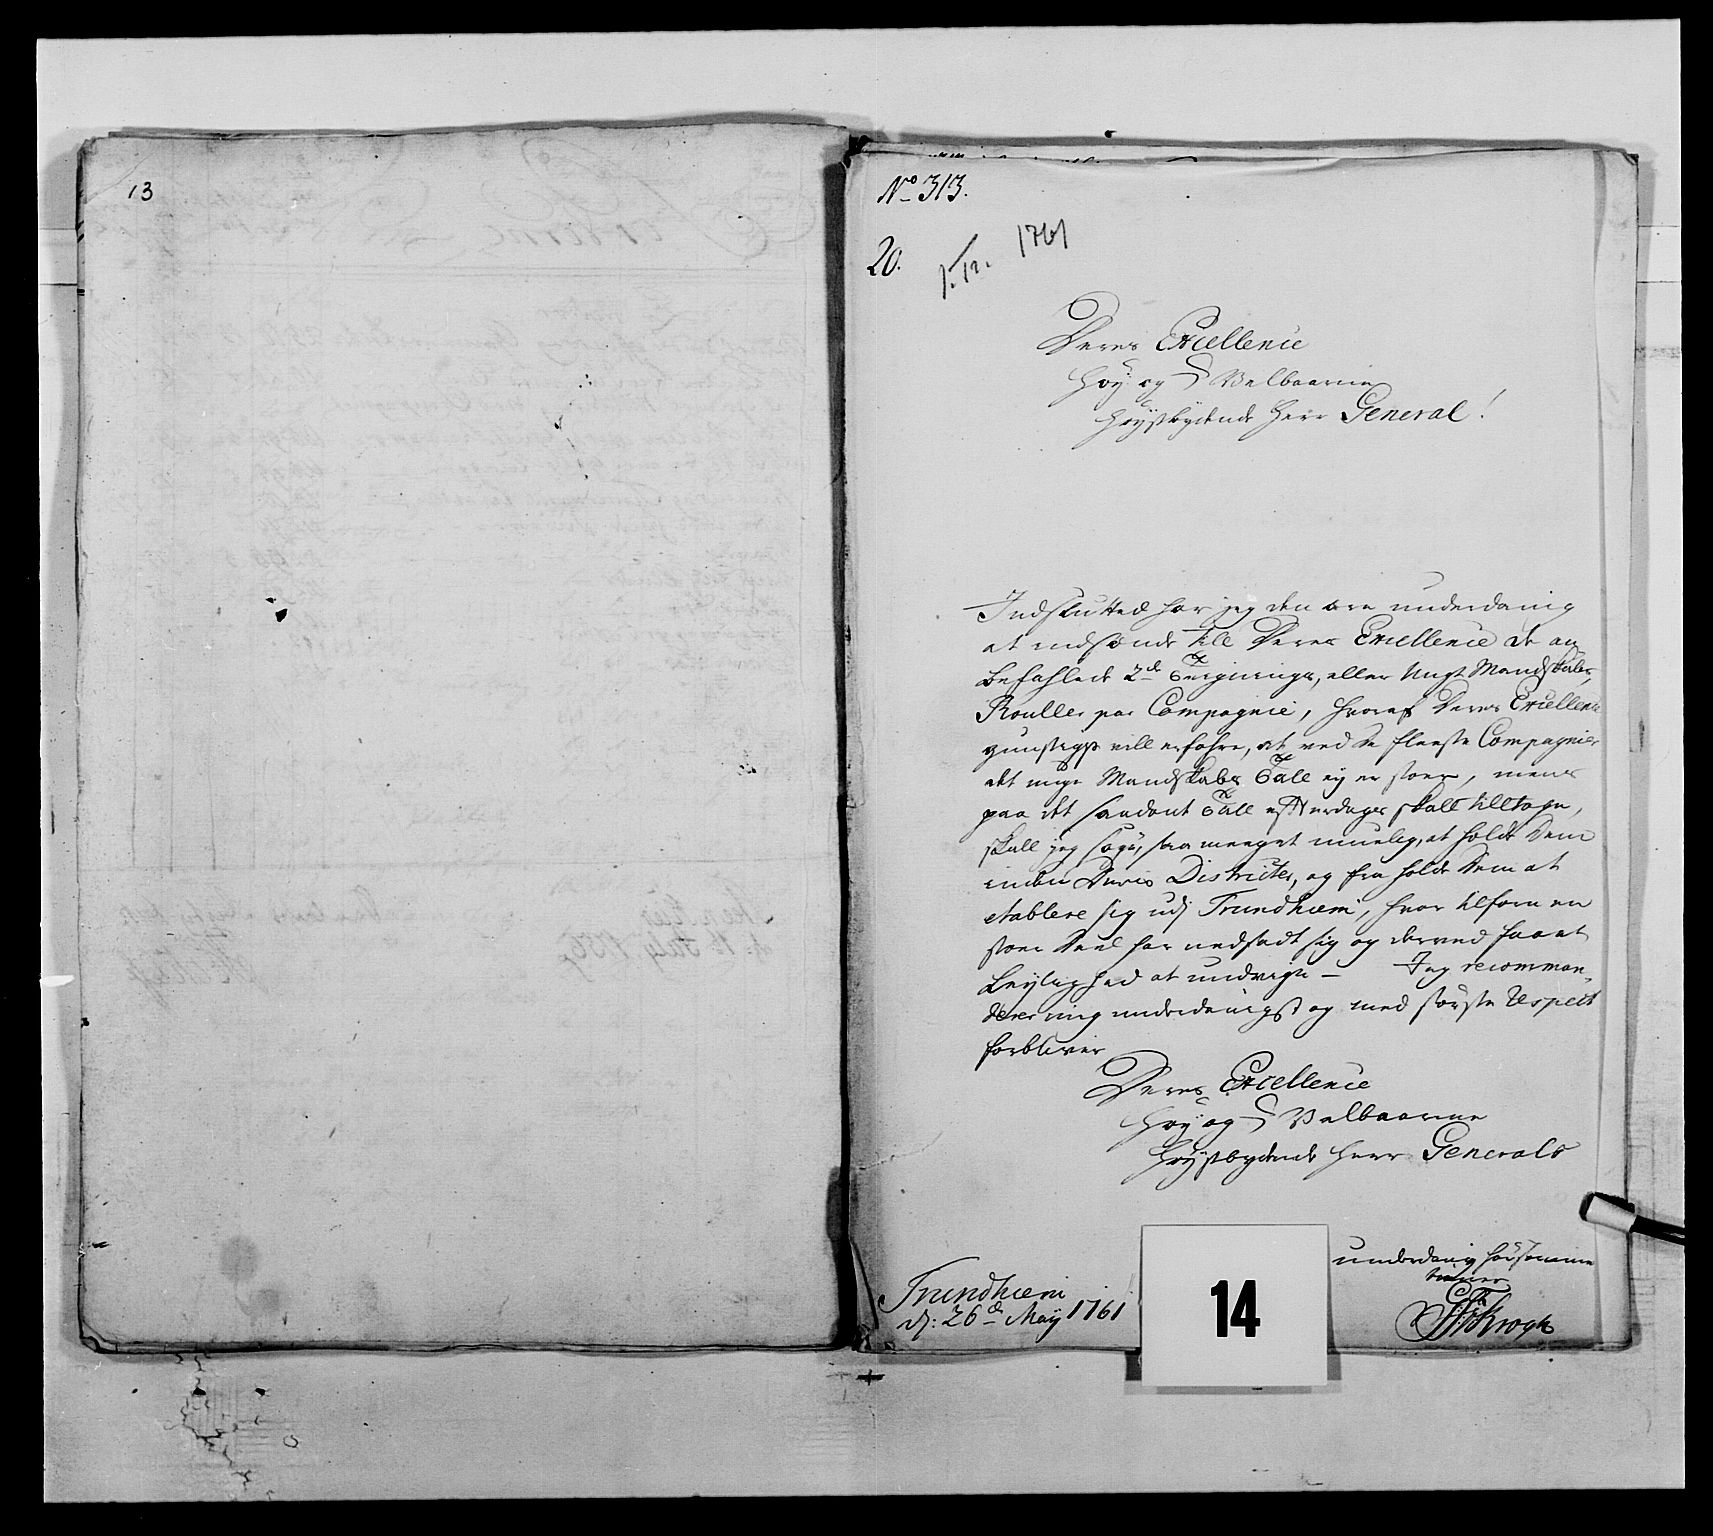 13
No 313.
20.
1. Tr. 1761
Deres Excellence
Høy og Velbaarne
Høystbydende Herr General!
Indslutted har jeg den ære underdanig
at indsænde till Deres Excellence de an
befahlede 2de Exeignings, eller Ungt Mandskabs
Rouller par Compagnie, hvoraf Deres Excellence
gunstigst vill erfahre, at ved de fleeste Compagnier
det unge Mandskabs Tall ey er stoer, mens
paa det saadant Tall efterdages skall tilltage,
skall jeg søge, saa meeget muelig, at holde dem
inden Deris Districter, og fra holde dem at
etablere sig udj Trundhiem, hvor tilforn en
stoer Deel har nedsadt sig og derved faaet
Leylighed at undvige — Jeg recomman-
derer mig underdanigst og med største Respect
forbliver
Deres Excellence
Høy og Velbaarne
Høystbydende Herr Generals
underdanig hørsamme
tiener
Krogh
Trundhiem
d: 26de Maÿ 1761
14